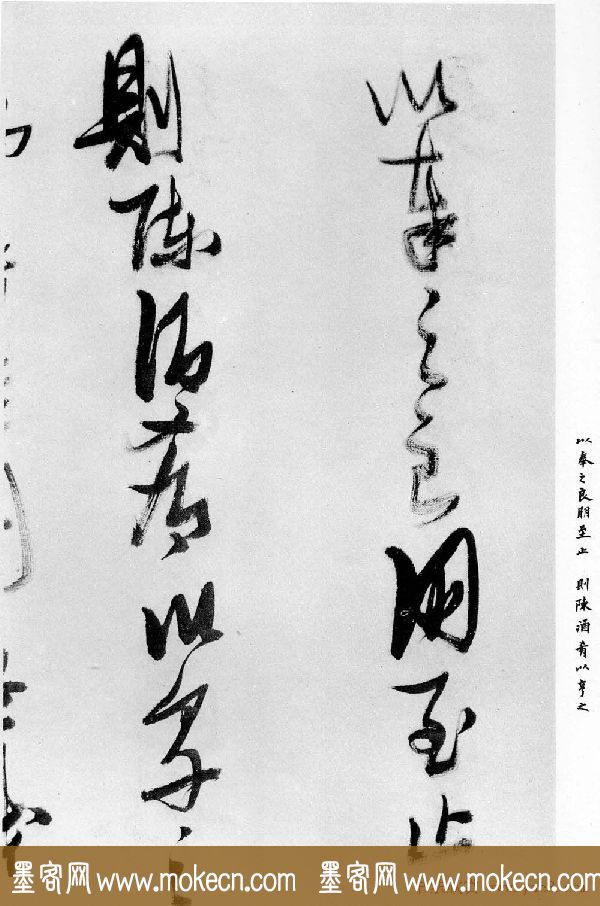 以奉之良朋至止
則陳酒肴以享之
以奉之良朋至止 則陳酒肴以亨之
墨客网 www.mokecn.com 墨客网 www.mokecn.com